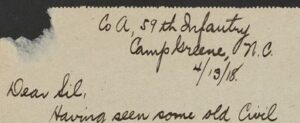 Co A, 59th Infantry
Camp Greene, N.C.
4/13/18.
Dear Sil,
Having seen some old Civil